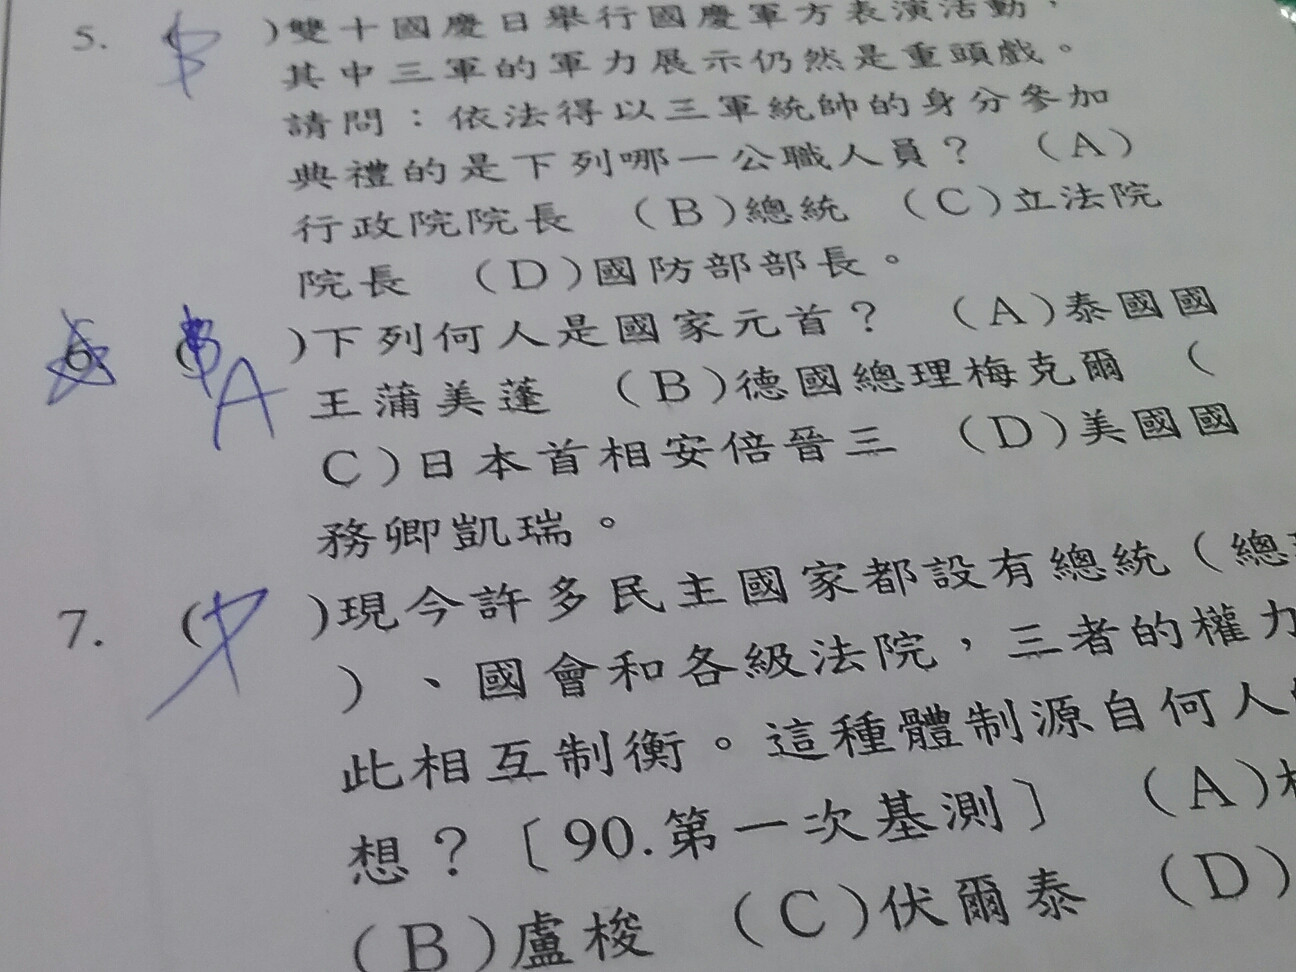 5. ( B )雙十國慶日舉行國慶軍方表演活動，
其中三軍的軍力展示仍然是重頭戲。
請問：依法得以三軍統帥的身分參加
典禮的是下列哪一公職人員？ (A)
行政院院長 (B)總統 (C)立法院
院長 (D)國防部部長。
6. ( A )下列何人是國家元首？ (A)泰國國
王蒲美蓬 (B)德國總理梅克爾 (
C)日本首相安倍晉三 (D)美國國
務卿凱瑞。
7. ( )現今許多民主國家都設有總統(總
)、國會和各級法院，三者的權力
此相互制衡。這種體制源自何人
想？〔90.第一次基測〕 (A)
(B)盧梭 (C)伏爾泰 (D)